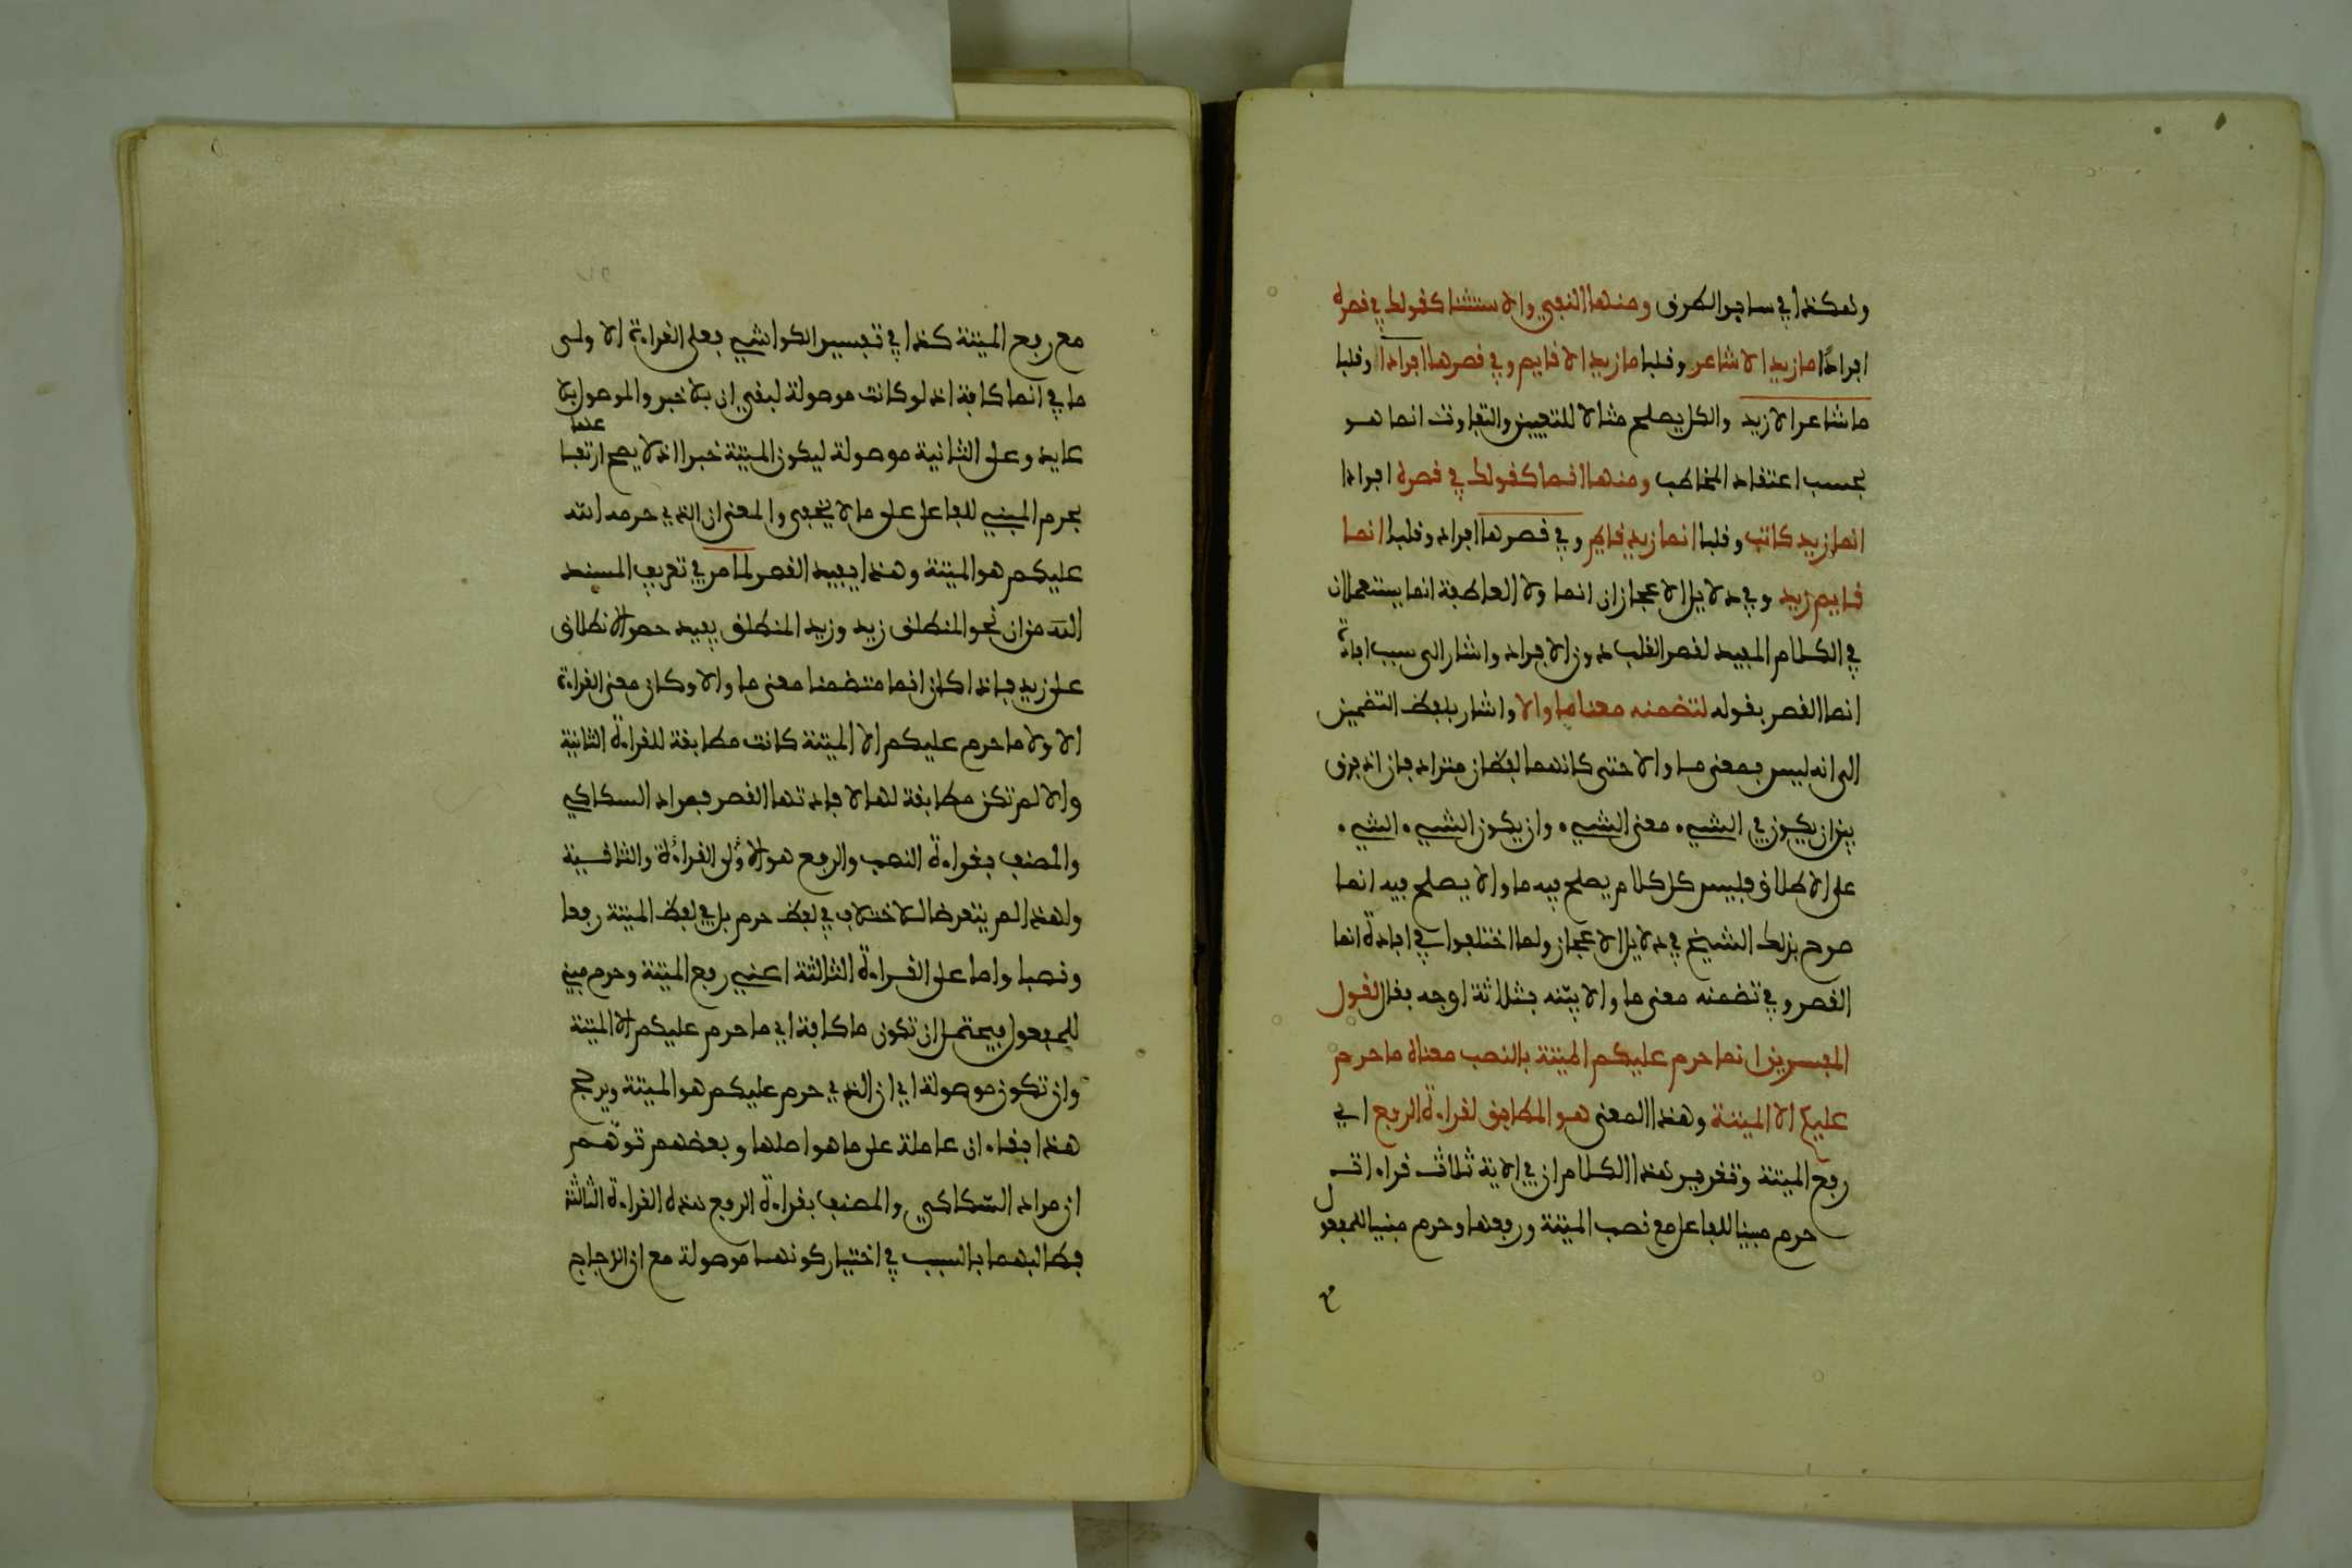 وهكذا في ساير الطرق ومنها النفي والاستثنا كقولك في قصره
افرادا ما زيد الا شاعر وقلبا ما زيد الا قايم وفي قصرها افرادا وقلبا
ما شاعر الا زيد والكل يصلح مثالا للتعيين والتفاوت انما هو
بحسب اعتقاد المخاطب ومنها انما كقولك في قصره افرادا
انما زيد كاتب وقلبا انما زيد قايم وفي قصرها افراد وقلبا انما
قايم زيد وفي دلايل الاعجاز ان انما ولا العاطفة انما يستعملان
في الكلام المفيد لقصر القلب دون الافراد واشار الى سبب افادة
انما القصر بقوله لتضمنه معنا ما والا واشار بلفظ التضمين
الى انه ليس بمعنى ما والا حتى كانهما لفظان متراد فان اذ فرق
بين ان يكون في الشيء معنى الشيء وان يكون الشيء الشيء
على الاطلاق فليس كل كلام يصلح فيه ما والا يصلح فيه انما
صرح بذلك الشيخ في دلايل الاعجاز ولما اختلفوا في افادة انما
القصر وفي تضمنه معنى ما والا بيّنه بثلاثة اوجه بقال لقول
المفسرين انما حرم عليكم الميتة بالنصب معناه ما حرم
عليكم الا الميتة وهذا المعنى هو المطابق لقراءة الرفع اي
رفع الميتة وتقرير هذا الكلام ان في الاية ثلاث قراءات
حرم مبنيا للفاعل مع نصب الميتة ورفعها وحرم مبنيا للمفعول
مع رفع الميتة كذا في تفسير الكواشي فعلى القراءة الاولى
ما في انما كافة اذ لو كانت موصولة لبقي ان بلا خبر والموصول بلا
عايد وعلى الثانية موصولة ليكون الميتة خبرا اذ لا يصح ارتفاعها
بحرم المبني للفاعل على ما لا يخفى والمعنى ان الذي حرمه الله
عليكم هو الميتة وهذا يفيد القصر لما مر في تعريف المسند
اليه من ان نحو المنطلق زيد وزيد المنطلق يفيد حصر الانطلاق
على زيد فاذا كان انما متضمنا معنى ما والا وكان معنى القراءة
الاولا ما حرم عليكم الا الميتة كانت مطابقة للقراءة الثانية
والا لم تكن مطابقة لها لافادتها القصر فمراد السكاكي
والمصنف بقراءة النصب والرفع هو الاولى القراءة والثانية
ولهذا لم يتعرضا للاختلاف في لفظ حرم بل في لفظ الميتة رفعا
ونصبا واما على القراءة الثالثة اعني رفع الميتة وحرم مبنيا
للمفعول فيحتمل ان تكون ما كافة اي ما حرم عليكم الا الميتة
وان تكون موصولة اي ان الذي حرم عليكم هو الميتة ويرجح
هذا بقاء ان عاملة على ما هو اصلها وبعضهم توهّم
ان مراد السّكاكي والمصنف بقراءة الرفع هذه القراءة الثالثة
فطالبهما بالسبب في اختيار كونهما موصولة مع ان الزجاج